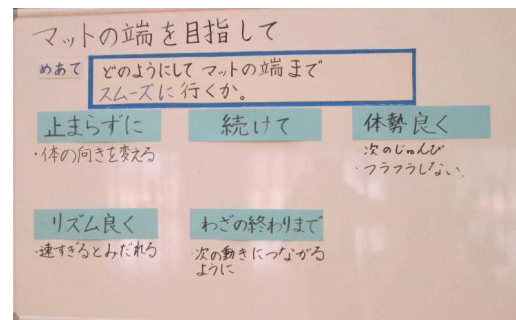 マットの端を目指して
めあて
どのようにしてマットの端まで
スムーズに行くか。
止まらずに
・体の向きを変える
続けて
体勢良く
・次のじゅんび
・フラフラしない。
リズム良く
・速すぎるとみだれる
わざの終わりまで
・次の動きにつながる
ように